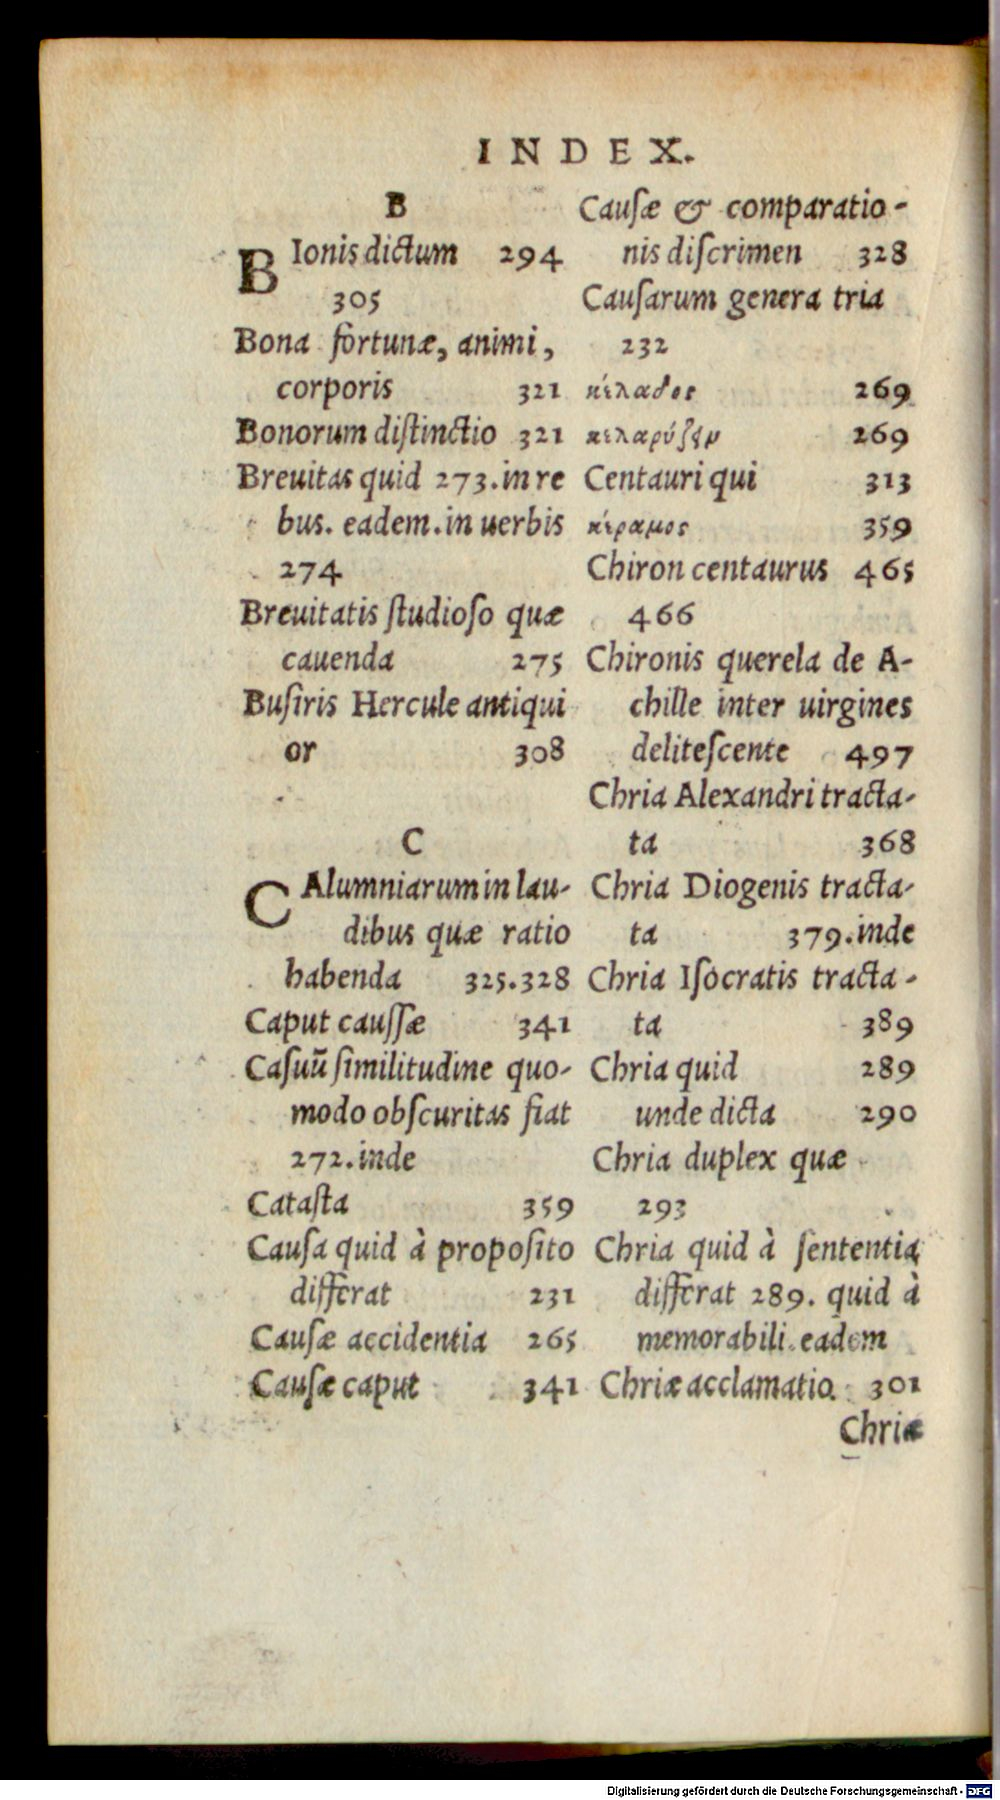 INDEX.
B
BIonis dictum 294
305
Bona fortunæ, animi,
corporis 321
Bonorum diſtinctio 321
Breuitas quid 273. in re
bus. eadem. in uerbis
274
Breuitatis ſtudioſo quæ
cauenda 275
Buſiris Hercule antiqui
or 308
C
CAlumniarum in lau-
dibus quæ ratio
habenda 325.328
Caput cauſſæ 341
Caſuū ſimilitudine quo-
modo obſcuritas fiat
272. inde
Cataſta 359
Cauſa quid à propoſito
differat 231
Cauſæ accidentia 265
Cauſæ caput 341
Cauſæ & comparatio-
nis diſcrimen 328
Cauſarum genera tria
232
κέλαδος 269
κελαρύζειν 269
Centauri qui 313
κέραμος 359
Chiron centaurus 465
466
Chironis querela de A-
chille inter uirgines
deliteſcente 497
Chria Alexandri tracta-
ta 368
Chria Diogenis tracta-
ta 379. inde
Chria Iſocratis tracta-
ta 389
Chria quid 289
unde dicta 290
Chria duplex quæ
293
Chria quid à ſententia
differat 289. quid à
memorabili. eadem
Chriæ acclamatio. 301
Chriæ
Digitalisierung gefördert durch die Deutsche Forschungsgemeinschaft - DFG